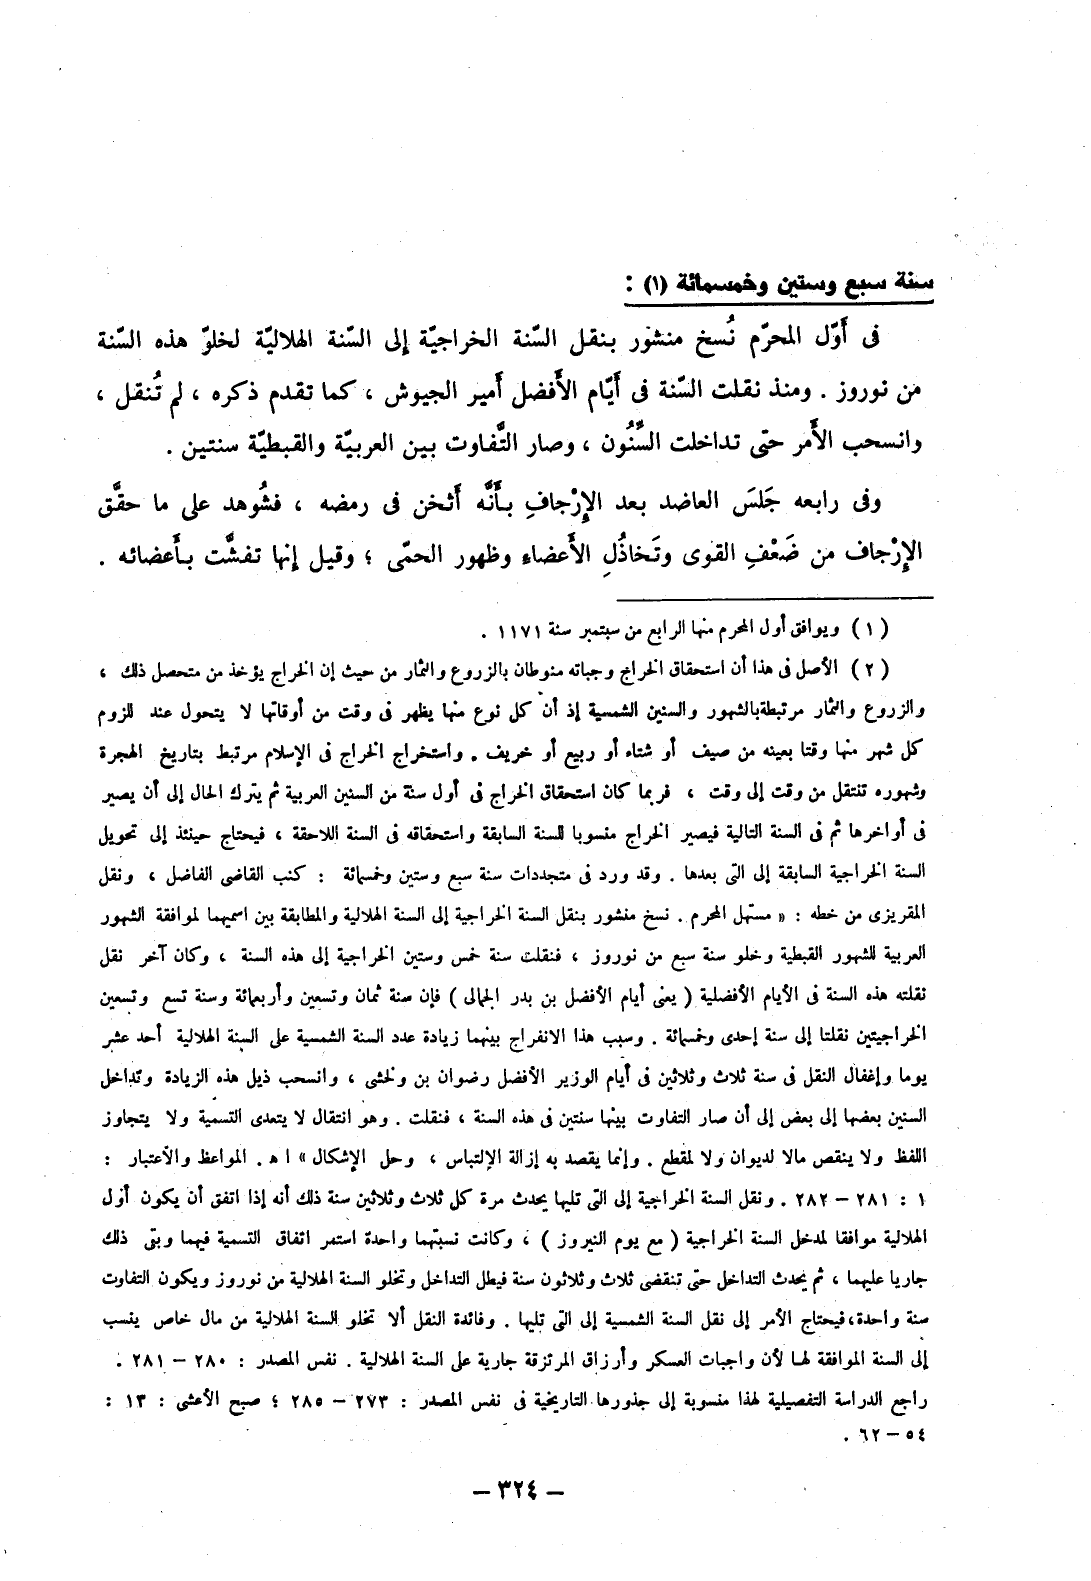 سنة سبع وستين وخمسمائة (١) :
فى أَوّل المحرّم نُسخ منشور بنقل السّنة الخراجيّة إلى السّنة الهلاليّة لخلوّ هذه السّنة
من نوروز . ومنذ نقلت السّنة فى أَيّام الأَفضل أَمير الجيوش ، كما تقدم ذكره ، لم تُنقل ،
وانسحب الأَمر حتّى تداخلت السِّنُون ، وصار التَّفاوت بين العربيّة والقبطيّة سنتين .
وفى رابعه جَلَسَ العاضد بعد الإِرْجافِ بأَنَّه أَثخن فى رمضه ، فشُوهد على ما حقَّق
الإِرْجاف من ضَعْفِ القوى وتَخاذُلِ الأَعضاء وظهور الحمّى ؛ وقيل إنها تفشَّت بأَعضائه .
( ١ ) ويوافق أول المحرم منها الرابع من سبتمبر سنة ١١٧١ .
( ٢ ) الأصل فى هذا أن استحقاق الخراج وجباته منوطان بالزروع والثمار من حيث إن الخراج يؤخذ من متحصل ذلك ،
والزروع والثمار مرتبطة بالشهور والسنين الشمسية إذ أن كل نوع منها يظهر فى وقت من أوقاتها لا يتحول عند لزوم
كل شهر منها وقتا بعينه من صيف أو شتاء أو ربيع أو خريف . واستخراج الخراج فى الإسلام مرتبط بتاريخ الهجرة
وشهوره تنتقل من وقت إلى وقت ، فربما كان استحقاق الخراج فى أول سنة من السنين العربية ثم يترك الحال إلى أن يصير
فى أواخرها ثم فى السنة التالية فيصير الخراج منسوبا للسنة السابقة واستحقاقه فى السنة اللاحقة ، فيحتاج حينئذ إلى تحويل
السنة الخراجية السابقة إلى التى بعدها . وقد ورد فى متجددات سنة سبع وستين وخمسمائة : كتب القاضى الفاضل ، ونقل
المقريزى من خطه : « مستهل المحرم . نسخ منشور بنقل السنة الخراجية إلى السنة الهلالية والمطابقة بين اسميهما لموافقة الشهور
العربية للشهور القبطية وخلو سنة سبع من نوروز ، فنقلت سنة خمس وستين الخراجية إلى هذه السنة ، وكان آخر نقل
نقلته هذه السنة فى الأيام الأفضلية ( يعنى أيام الأفضل بن بدر الجمالى ) فإن سنة ثمان وتسعين وأربعمائة وسنة تسع وتسعين
الخراجيتين نقلتا إلى سنة إحدى وخمسمائة . وسبب هذا الانفراج بينهما زيادة عدد السنة الشمسية على السنة الهلالية أحد عشر
يوما وإغفال النقل فى سنة ثلاث وثلاثين فى أيام الوزير الأفضل رضوان بن ولخشى ، وانسحب ذيل هذه الزيادة وتداخل
السنين بعضها إلى بعض إلى أن صار التفاوت بينها سنتين فى هذه السنة ، فنقلت . وهو انتقال لا يتعدى التسمية ولا يتجاوز
اللفظ ولا ينقص مالا لديوان ولا لمقطع . وإنما يقصد به إزالة الإلتباس ، وحل الإشكال » ا هـ . المواعظ والأعتبار :
١ : ٢٨١ – ٢٨٢ . ونقل السنة الخراجية إلى التى تليها يحدث مرة كل ثلاث وثلاثين سنة ذلك أنه إذا اتفق أن يكون أول
الهلالية موافقا لمدخل السنة الخراجية ( مع يوم النيروز ) ، وكانت نسبتهما واحدة استمر اتفاق التسمية فيهما وبقى ذلك
جاريا عليهما ، ثم يحدث التداخل حتى تنقضى ثلاث وثلاثون سنة فيطل التداخل وتخلو السنة الهلالية من نوروز ويكون التفاوت
سنة واحدة، فيحتاج الأمر إلى نقل السنة الشمسية إلى التى تليها . وفائدة النقل ألا تخلو السنة الهلالية من مال خاص ينسب
إلى السنة الموافقة لها لأن واجبات العسكر وأرزاق المرتزقة جارية على السنة الهلالية . نفس المصدر : ٢٨٠ – ٢٨١ .
راجع الدراسة التفصيلية لهذا منسوبة إلى جذورها التاريخية فى نفس المصدر : ٢٧٣ – ٢٨٥ ؛ صبح الأعشى : ١٣ :
٥٤ – ٦٢ .
– ٣٢٤ –